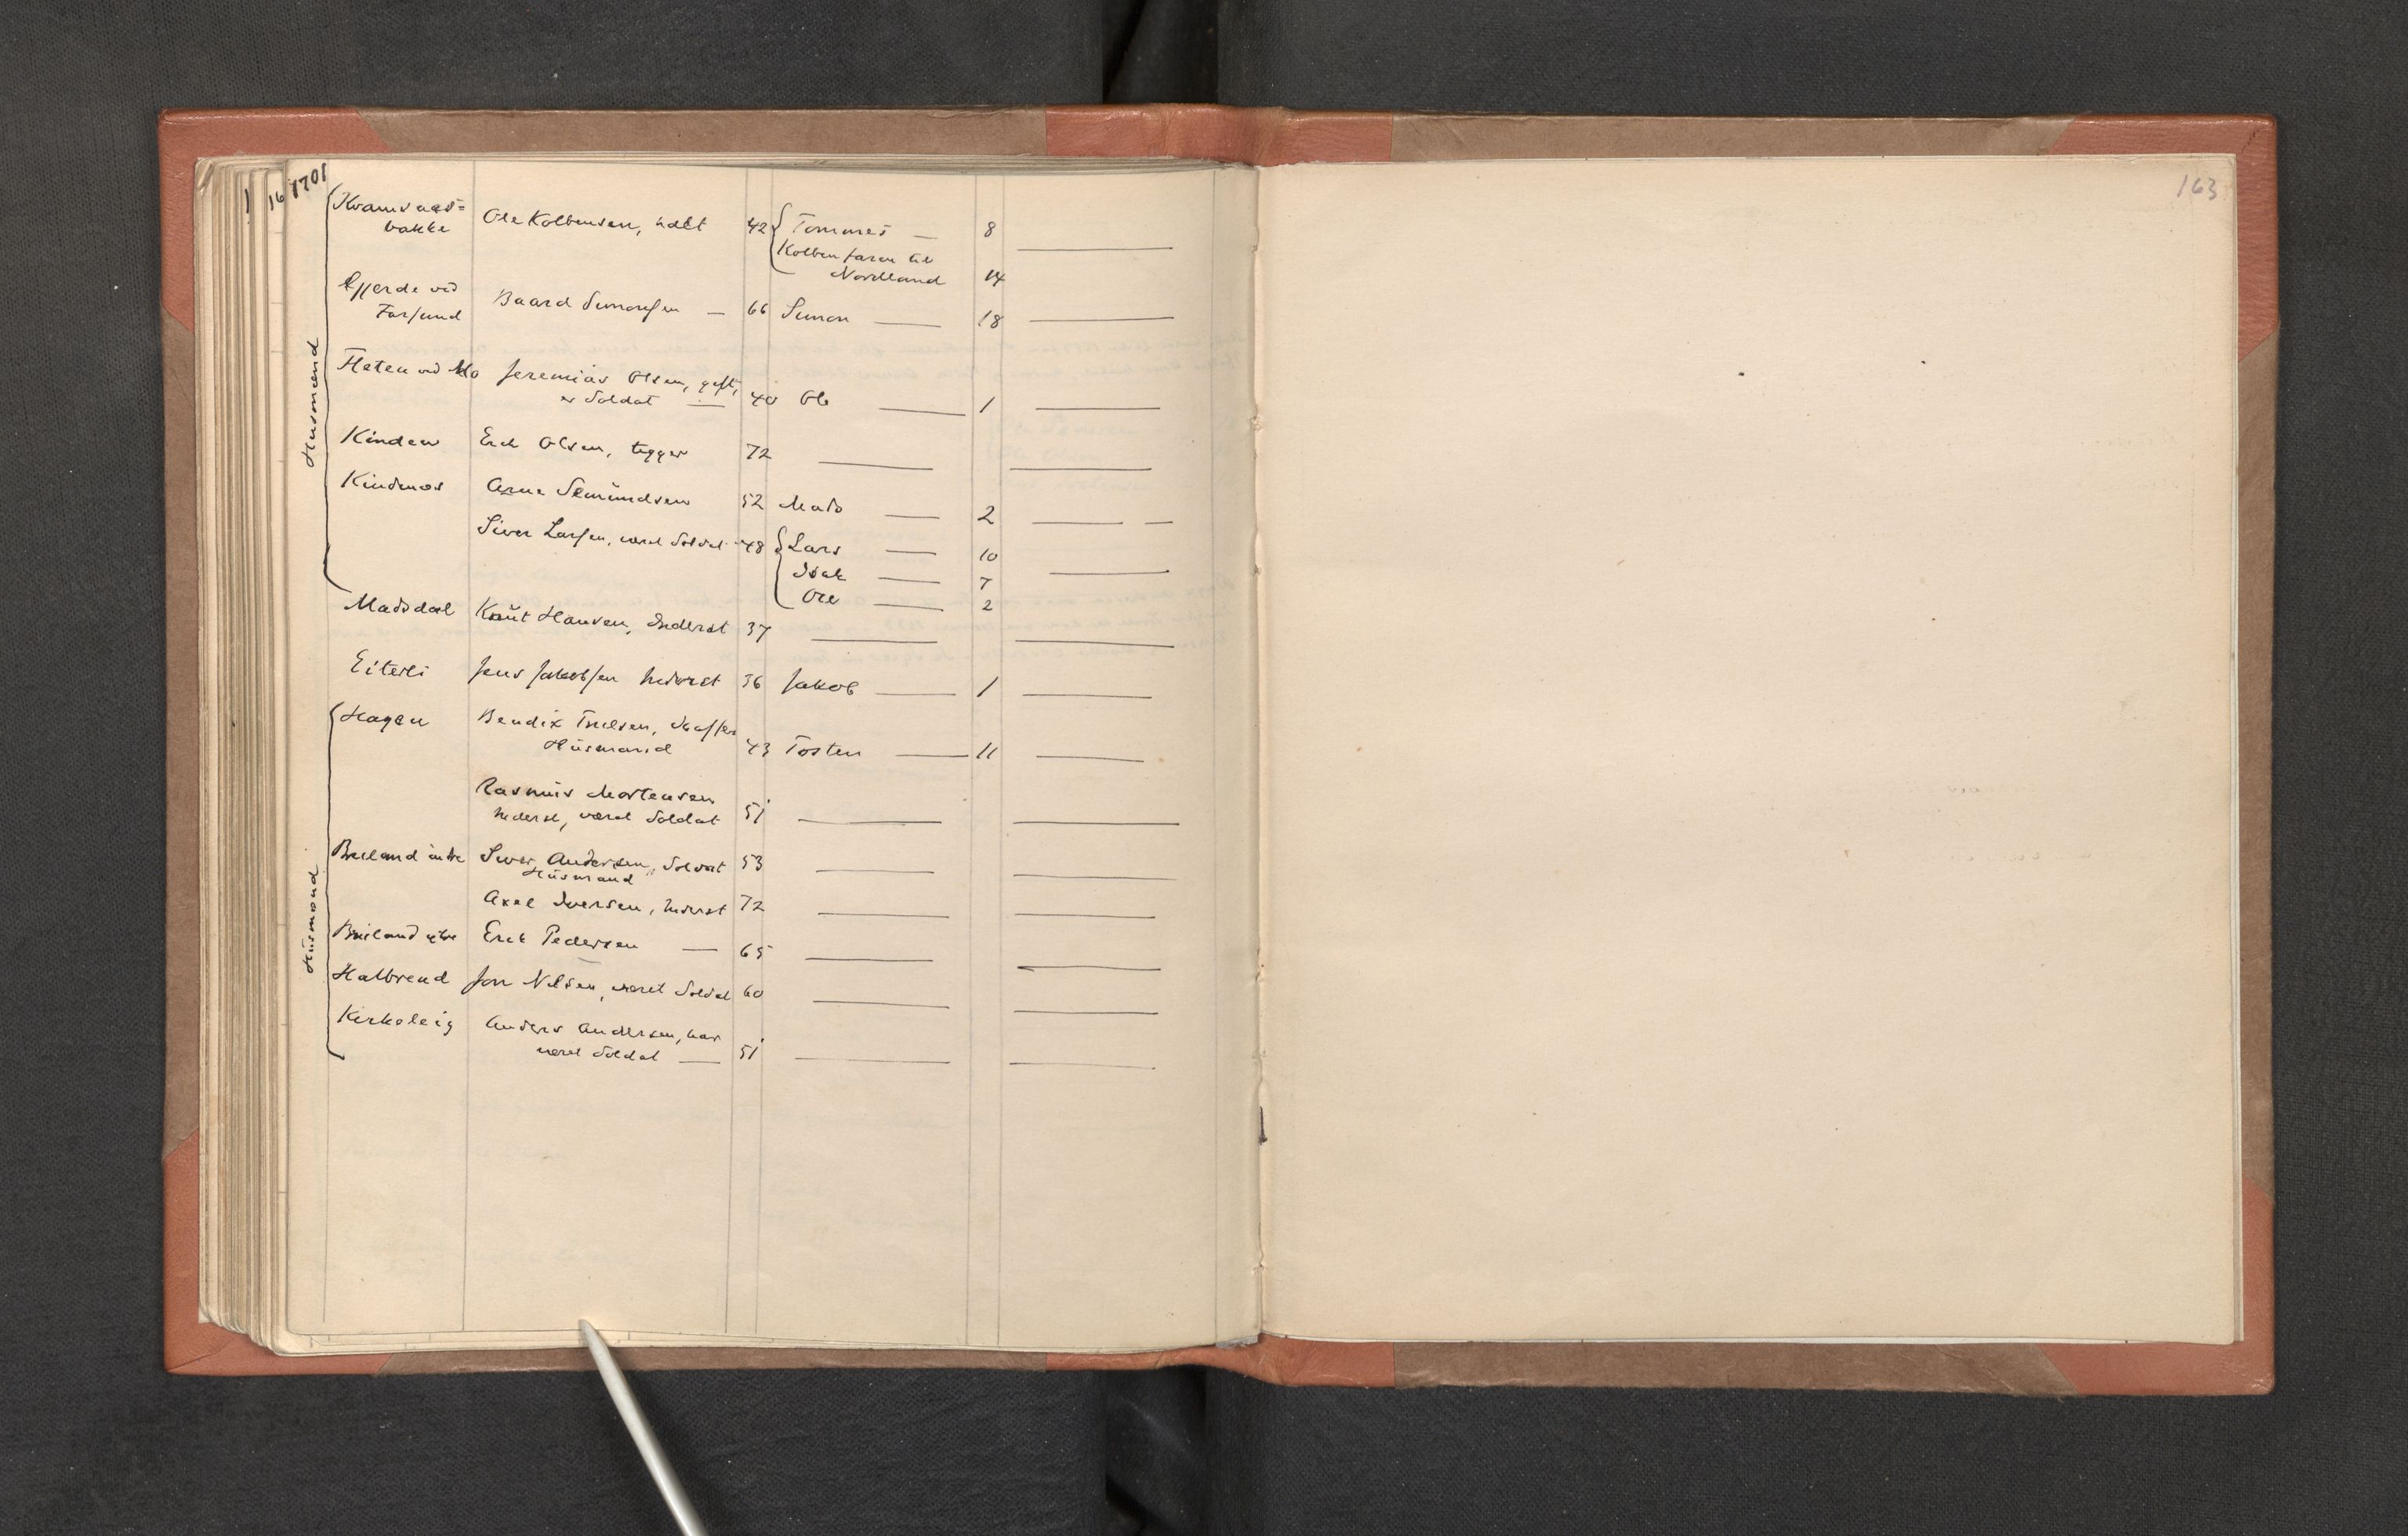 1701
Husmænd
Kvamsaas=
bakke Ole Kolbensen, halt 42 Tommes — 8
Kolben faren til
Nordland 14
Gjerde ved
Farsund Baard Simonsen — 66 Simon — 18
Fleten ved Mo Jeremias Olsen, gift,
er Soldat — 40 Ole — 1
Kinden Erik Olsen, tigger 72
Kindmos Arne Semundsen 52 Mads — 2
Siver Larsen, været Soldat 48 Lars — 10
Isak — 7
Ole — 2
Madsdal Knut Hansen, Inderst 37
Eiterli Jens Jakobsen Inderst 36 Jakob — 1
Husmænd
Hagen Bendix Trulsen, Skaffer
Husmand 43 Tosten — 11
Rasmus Mortensen
Inderst, været Soldat 51
Breiland indre Siver Andersen, Soldat 53
Husmand
Axel Iversen, Inderst 72
Breiland ytre Erik Pedersen — 65
Halbrend Jon Nilsen, været Soldat 60
Kirkeleig Anders Andersen, har
været Soldat — 51
163